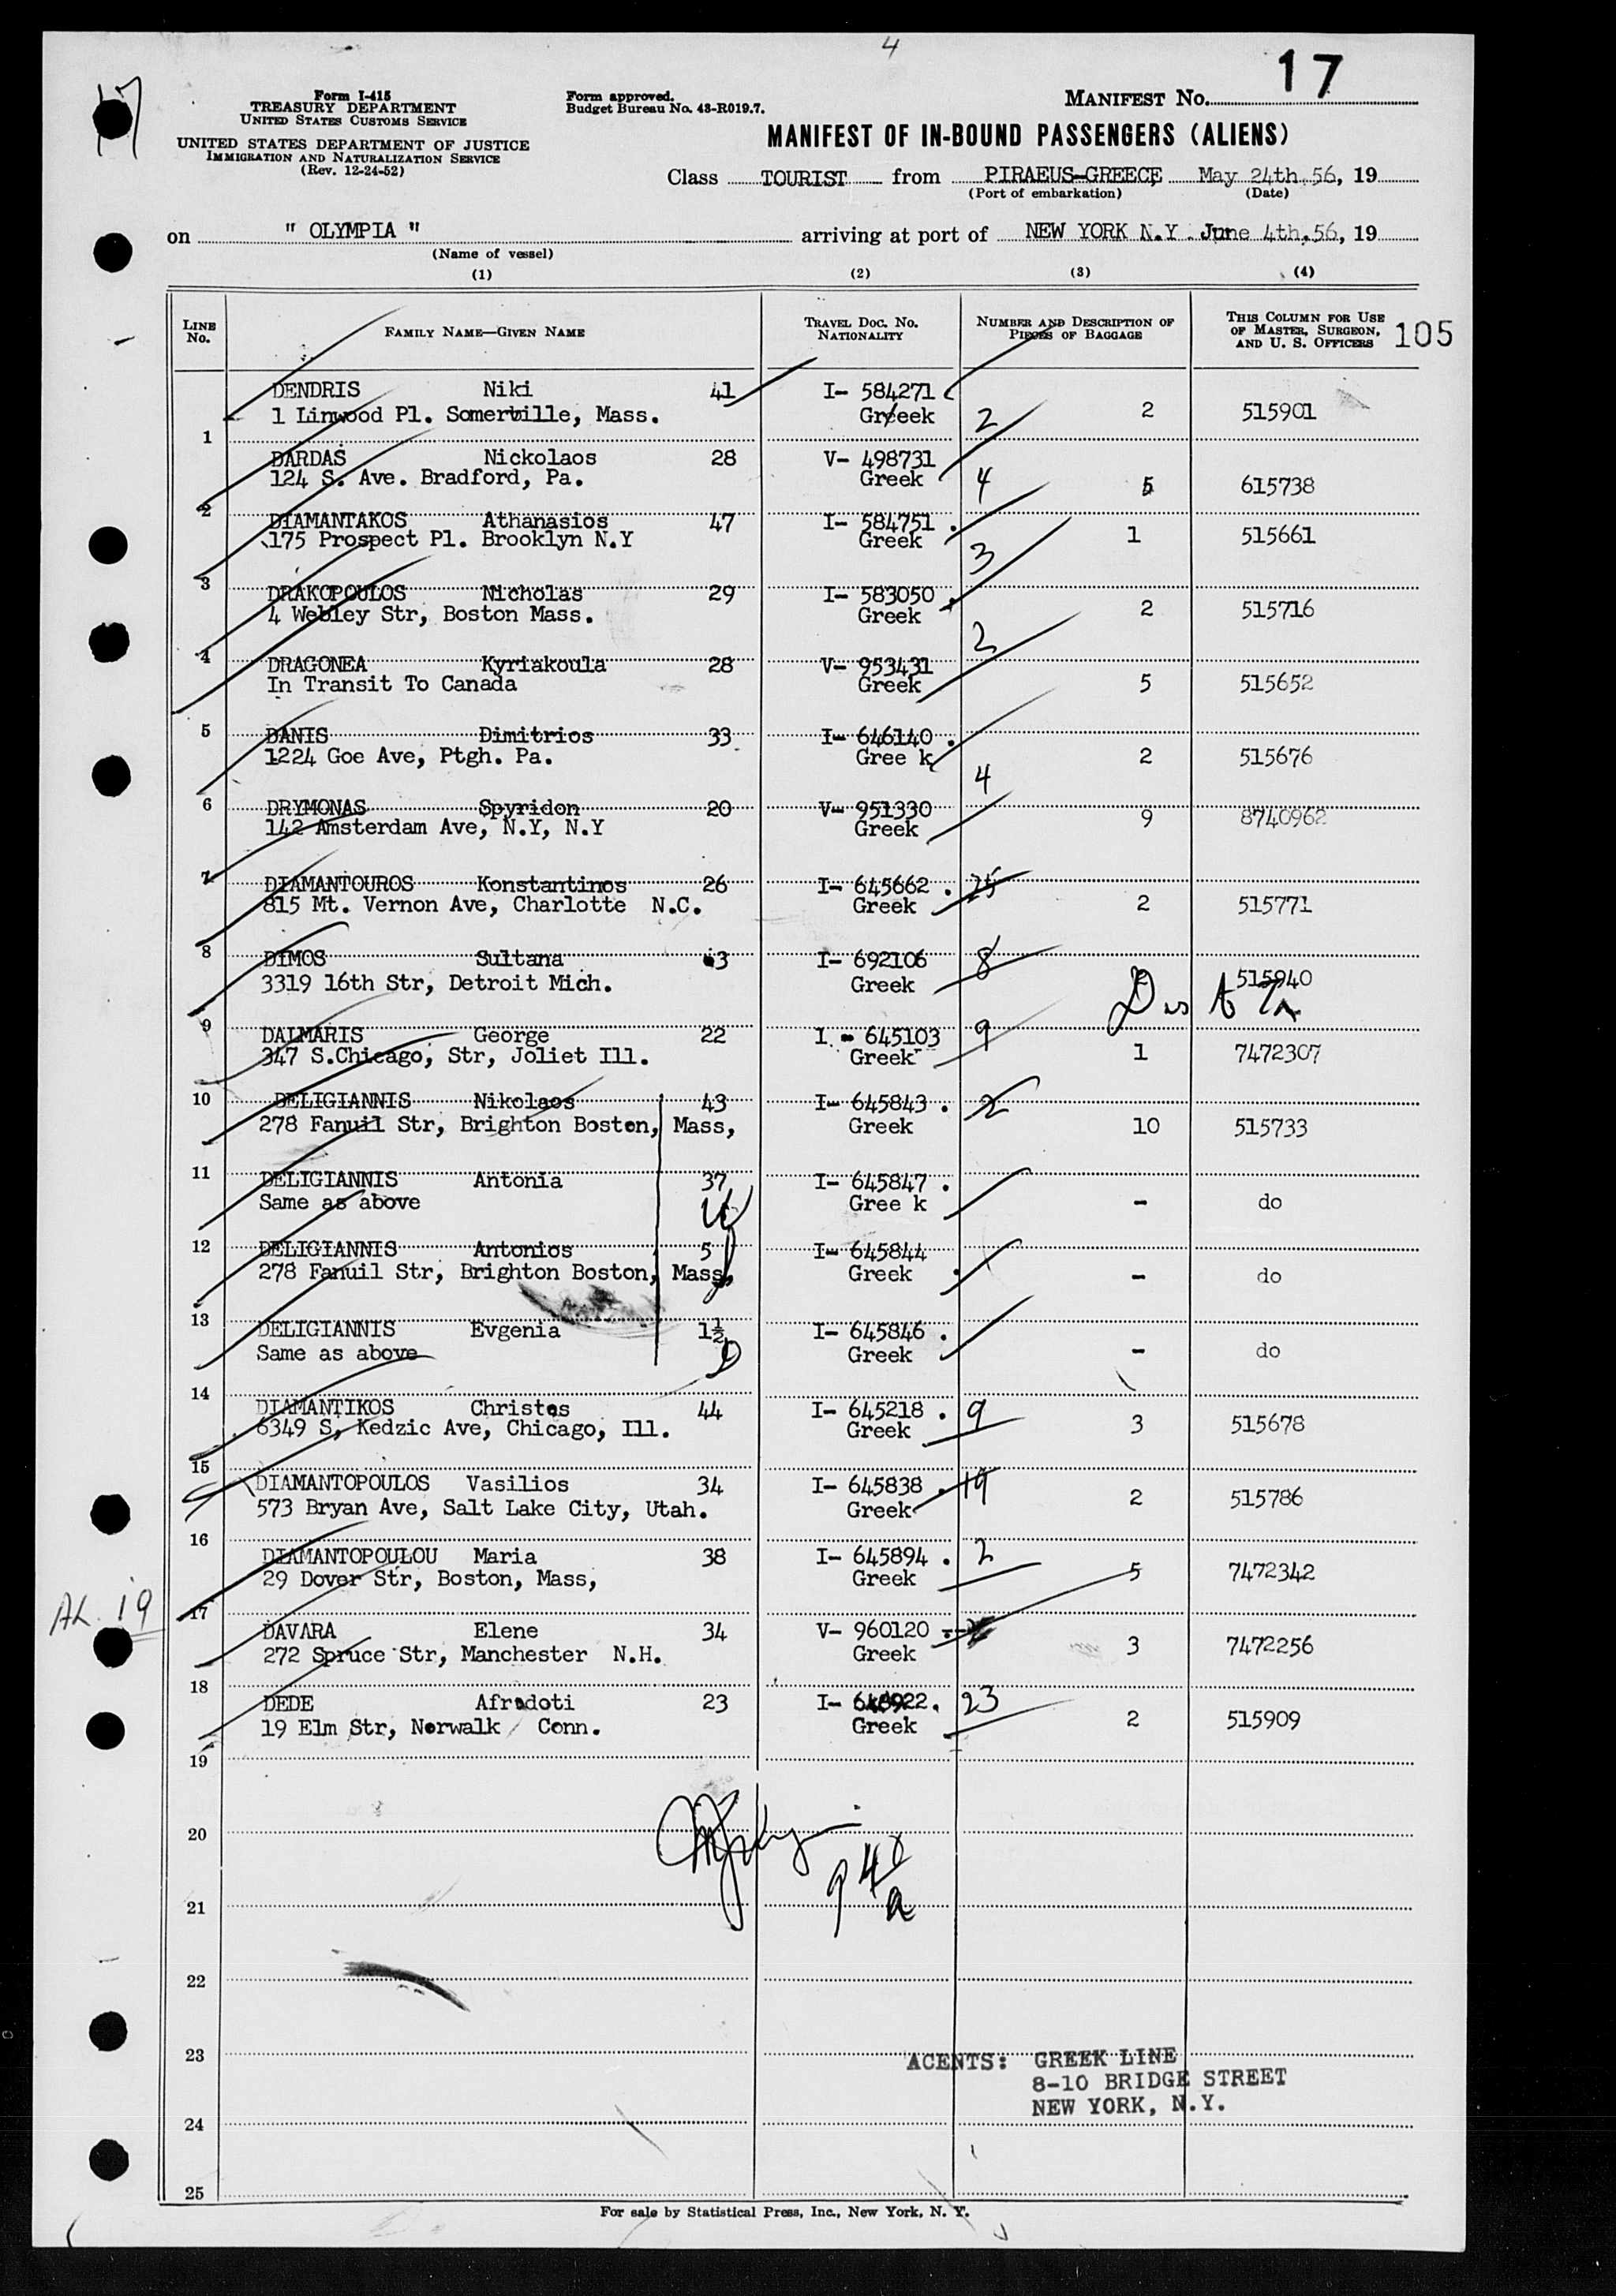 4
17
17
Form I-415
TREASURY DEPARTMENT
UNITED STATES CUSTOMS SERVICE
UNITED STATES DEPARTMENT OF JUSTICE
IMMIGRATION AND NATURALIZATION SERVICE
(Rev. 12-24-52)
Form approved.
Budget Bureau No. 43-R019.7.
MANIFEST No.
MANIFEST OF IN-BOUND PASSENGERS (ALIENS)
Class TOURIST from PIRAEUS-GREECE May 24th.56, 19
(Port of embarkation) (Date)
on " OLYMPIA " arriving at port of NEW YORK N.Y. June 4th.56, 19
(Name of vessel)
(1) (2) (3) (4)
LINE No. FAMILY NAME—GIVEN NAME TRAVEL DOC. No. NATIONALITY NUMBER AND DESCRIPTION OF PIECES OF BAGGAGE THIS COLUMN FOR USE OF MASTER, SURGEON, AND U. S. OFFICERS 105
DENDRIS Niki 41 I- 584271
1 Linwood Pl. Somerville, Mass. Greeek 2 2 515901
1
DARDAS Nickolaos 28 V- 498731
124 S. Ave. Bradford, Pa. Greek 4 5 615738
2
DIAMANTAKOS Athanasios 47 I- 584751 .
175 Prospect Pl. Brooklyn N.Y Greek 3 1 515661
3
DRAKOPOULOS Nicholas 29 I- 583050 .
4 Webley Str, Boston Mass. Greek 2 2 515716
4
DRAGONEA Kyriakoula 28 V- 953431
In Transit To Canada Greek 5 515652
5
DANIS Dimitrios 33 I- 646140 .
1224 Goe Ave, Ptgh. Pa. Gree k 4 2 515676
6
DRYMONAS Spyridon 20 V- 951330
142 Amsterdam Ave, N.Y, N.Y Greek 9 8740962
7
DIAMANTOUROS Konstantinos 26 I- 645662 . 25
815 Mt. Vernon Ave, Charlotte N.C. Greek 2 515771
8
DIMOS Sultana 3 I- 692106 8
3319 16th Str, Detroit Mich. Greek 515940
9
DALMARIS George 22 I - 645103 9
347 S.Chicago, Str, Joliet Ill. Greek 1 7472307
10
DELIGIANNIS Nikolaos 43 I- 645843 . 2
278 Fanuil Str, Brighton Boston, Mass, Greek 10 515733
11
DELIGIANNIS Antonia 37 I- 645847 .
Same as above Gree k - do
12
DELIGIANNIS Antonios 5 I- 645844
278 Fanuil Str, Brighton Boston, Mass, Greek - do
13
DELIGIANNIS Evgenia 1½ I- 645846 .
Same as above Greek - do
14
DIAMANTIKOS Christos 44 I- 645218 . 9
6349 S, Kedzic Ave, Chicago, Ill. Greek 3 515678
15
DIAMANTOPOULOS Vasilios 34 I- 645838 . 19
573 Bryan Ave, Salt Lake City, Utah. Greek 2 515786
16
DIAMANTOPOULOU Maria 38 I- 645894 . 2
29 Dover Str, Boston, Mass, Greek 5 7472342
17
DAVARA Elene 34 V- 960120
272 Spruce Str, Manchester N.H. Greek 3 7472256
18
DEDE Afrodoti 23 I- 645922. 23
19 Elm Str, Norwalk Conn. Greek 2 515909
19
20
21
22
23
ACENTS: GREEK LINE
8-10 BRIDGE STREET
NEW YORK, N.Y.
24
25
For sale by Statistical Press, Inc., New York, N. Y.